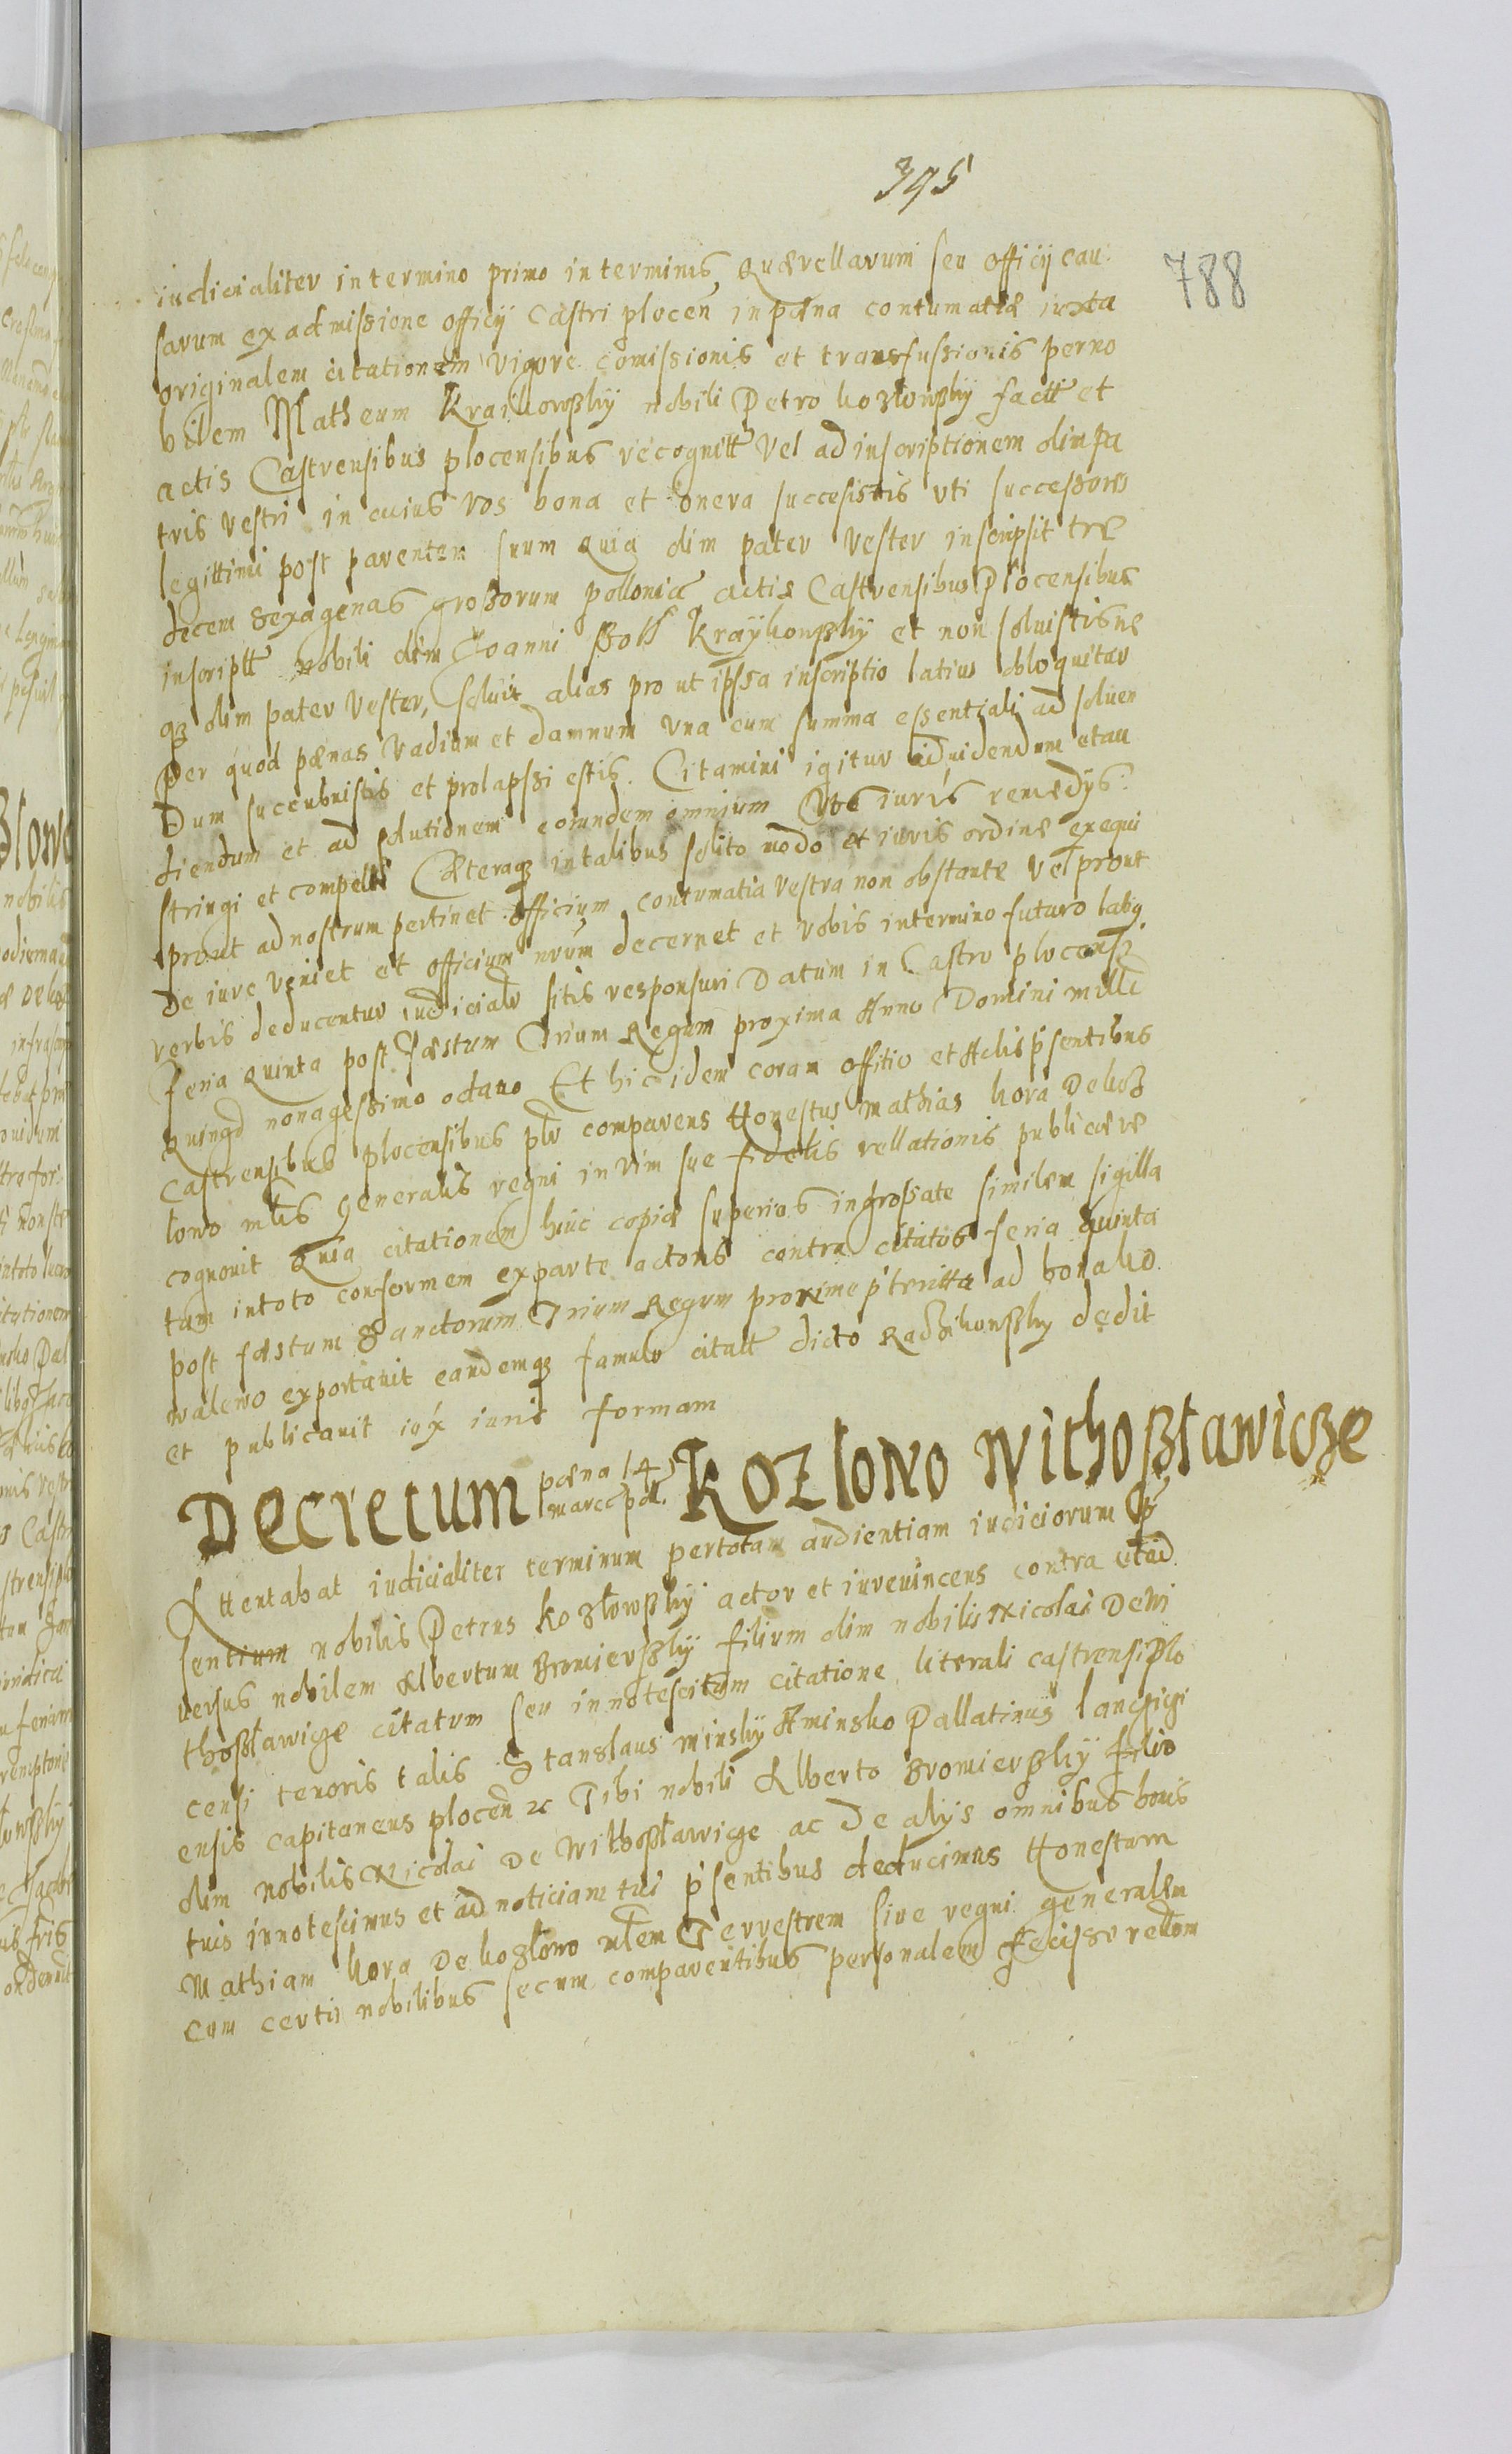 395
788
iudicialiter in termino primo in terminis, Quærellarum seu officij cau
sarum ex admissione officij Castri plocen̄ in pæna contumatiæ iuxta
originalem citationem vigore comissionis et transfussionis per no
bilem Matheum Kraikowßky nobili Petro kozłowßky factæ et
actis Castrensibus plocensibus recognittæ Vel ad inscriptionem olim pa
tris vestri in cuius vos bona et onera succesistis uti successores
legittimi post parentem suum quia olim pater vester inscripsit tre
decem sexagenas großorum pollonicæ actis Castrensibus Plocensibus
inscriptæ Nobili olim Joanni Kraÿkowßky et non soluistis ne
qз olim pater vester, soluit alias pro ut ipssa inscriptio latius obloquitur
Per quod pænas vadium et damnum una cum summa essentiali ad soluen
Dum sucubuistis et prolapszi estis. Citamini igitur ad uidendum et au
diendum et ad solutionem eorundem omnium Vos iuris remedys
stringi et compelli Cæteraqз in talibus solito modo et iuris ordine exequi
prout ad nostrum pertinet officium contumatia vestra non obstante vel prout
De iure veniet et officium nrūm decernet et vobis in termino futuro latiq
verbis deducentur iudicialr sitis responsuri Datum in Castro plocensi
Feria quinta post Fæstum Trium Regum proxima Anno Domini mille
quingd nonagesszimo octauo Et hic idem coram offitio et Actis p̄sentibus
Castrensibus plocensibus plr comparens Honestus Mathias kora De koz
łowo mlis Generalis regni in vim sue fidelis rellationis publicæ re
cognouit Quia citationem huic copiæ superius ingroßate similem sigilla
tam in toto conformem ex parte actoris contra citatos feria quinta
post fæstum Sanctorum Trium Regum proxime p̄teritta ad bona ko
walewo exportauit eandemqз famulo citatt dicto Radzikowßky dedit
et publicauit iux iuris formam
Decretum pæna 14 marcc pol. Kozlowo Withoßławicze
Attentabat iudicialiter terminum per totam audientiam iudiciorum p̄
sentium nobilis Petrus kozłowßky actor et iure uincens contra et ad
uersus nobilem Albertum Bromierßky filium olim nobilis Nicolai De Wi
thoßławicze citatum seu innotescitum citatione literali castrensi plo
censi tenoris talis Stanslaus Minsky A minsko Pallatinus lancici
ensis capitaneus plocen̄ &c Tibi nobili Alberto Bromierßky filio
olim nobilis Nicolai De Withoßławicze ac De alÿs omnibus bonis
tuis innotescimus et ad noticiam tui p̄sentibus deducimus Honestum
Mathiam kora De kozłowo mlem Terrestrem siue regni generalem
cum certis nobilibus secum comparentibus personalem fecisse rellom